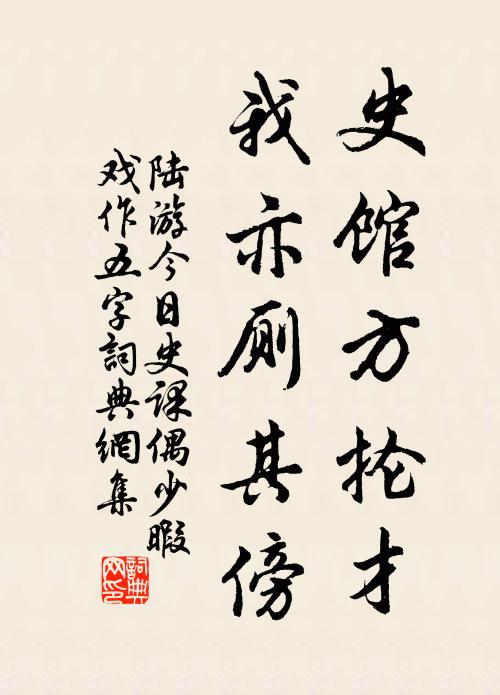 史馆方抡才
我亦厕其傍
陆游今日史课偶少暇
戏作五字詞典網集
詞典网印